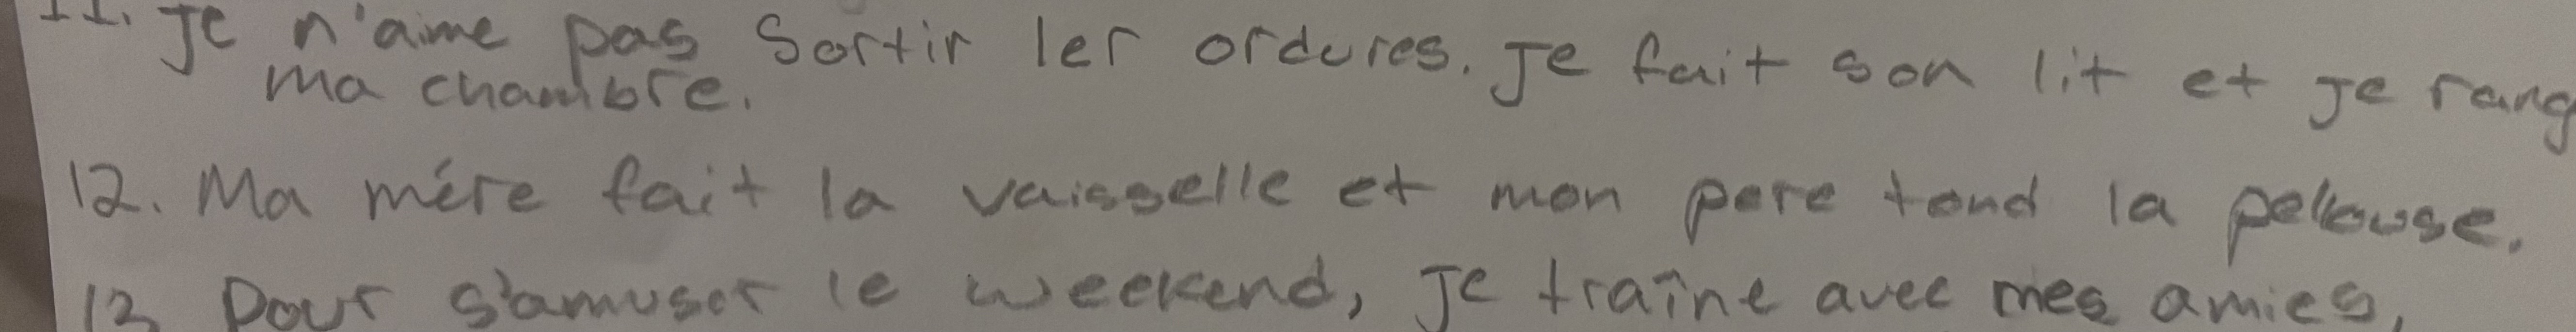 11. Je n'aime pas sortir ler ordures. Je fait son lit et je rang
ma chambre.
12. Ma mére fait la vaisselle et mon pere tond la pellouse.
13 Pour s'amuser le weekend, je traîne avec mes amies,